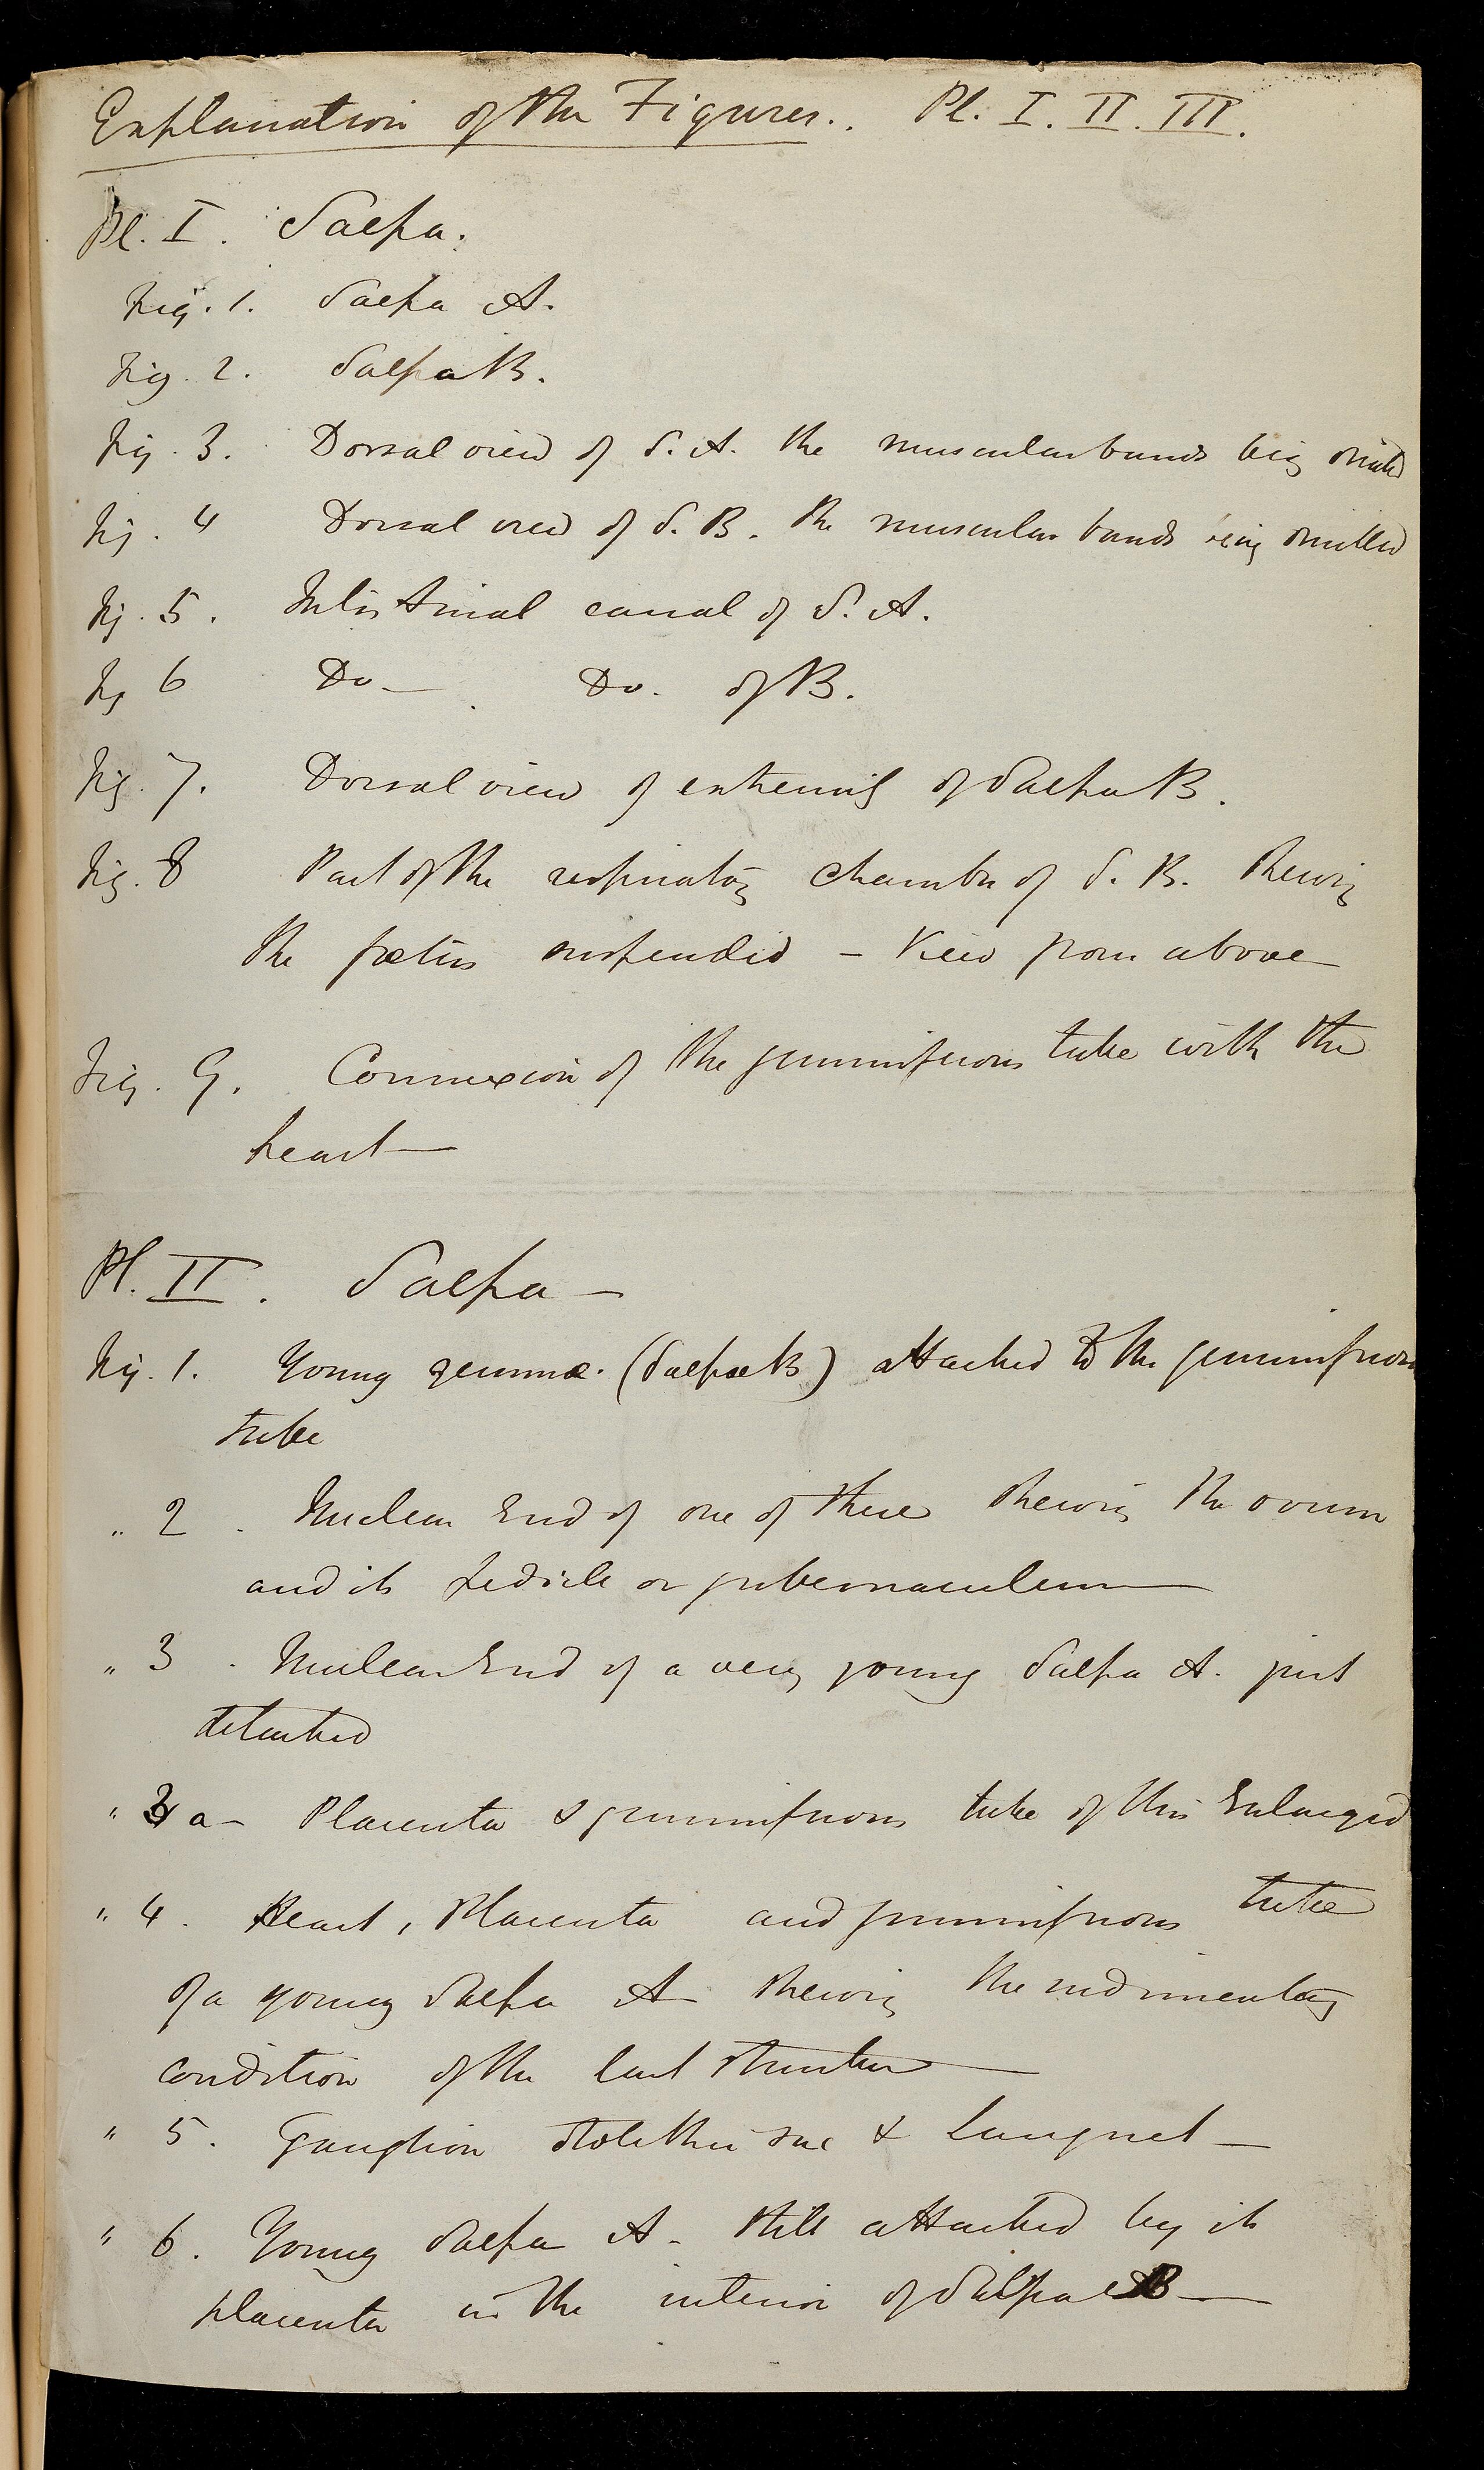 Explanation of the Figures. Pl. I. II. III.
Pl. I. Salpa.
Fig. 1. Salpa A.
Fig. 2. Salpa B.
Fig. 3. Dorsal view of S. A. the muscular bands being omitted
Fig. 4 Dorsal view of S. B. the muscular bands being omitted
Fig. 5. Intestinal canal of S. A.
Fig 6 Do — Do. of B.
Fig. 7. Dorsal view of extremity of Salpa B.
Fig. 8 Part of the respiratory chamber of S. B. shewing
the fœtus suspended – View from above
Fig. 9. Connexion of the gemmiferous tube with the
heart —
Pl. II. Salpa —
Fig. 1. Young gemmæ. (Salpæ B) attached to the gemmiferous
tube
" 2. Nuclear End of one of these shewing the ovum
and its pedicle or gubernaculum —
" 3. Nuclear End of a very young Salpa A. just
detached
" 3 a – Placenta & gemmiferous tube of this Enlarged
" 4. Heart, Placenta and gemmiferous tube
of a young Salpa A shewing the rudimentary
condition of the last structure —
" 5. Ganglion otolithic sac & Languet —
" 6. Young Salpa A. still attached by its
placenta in the interior of Salpa B —